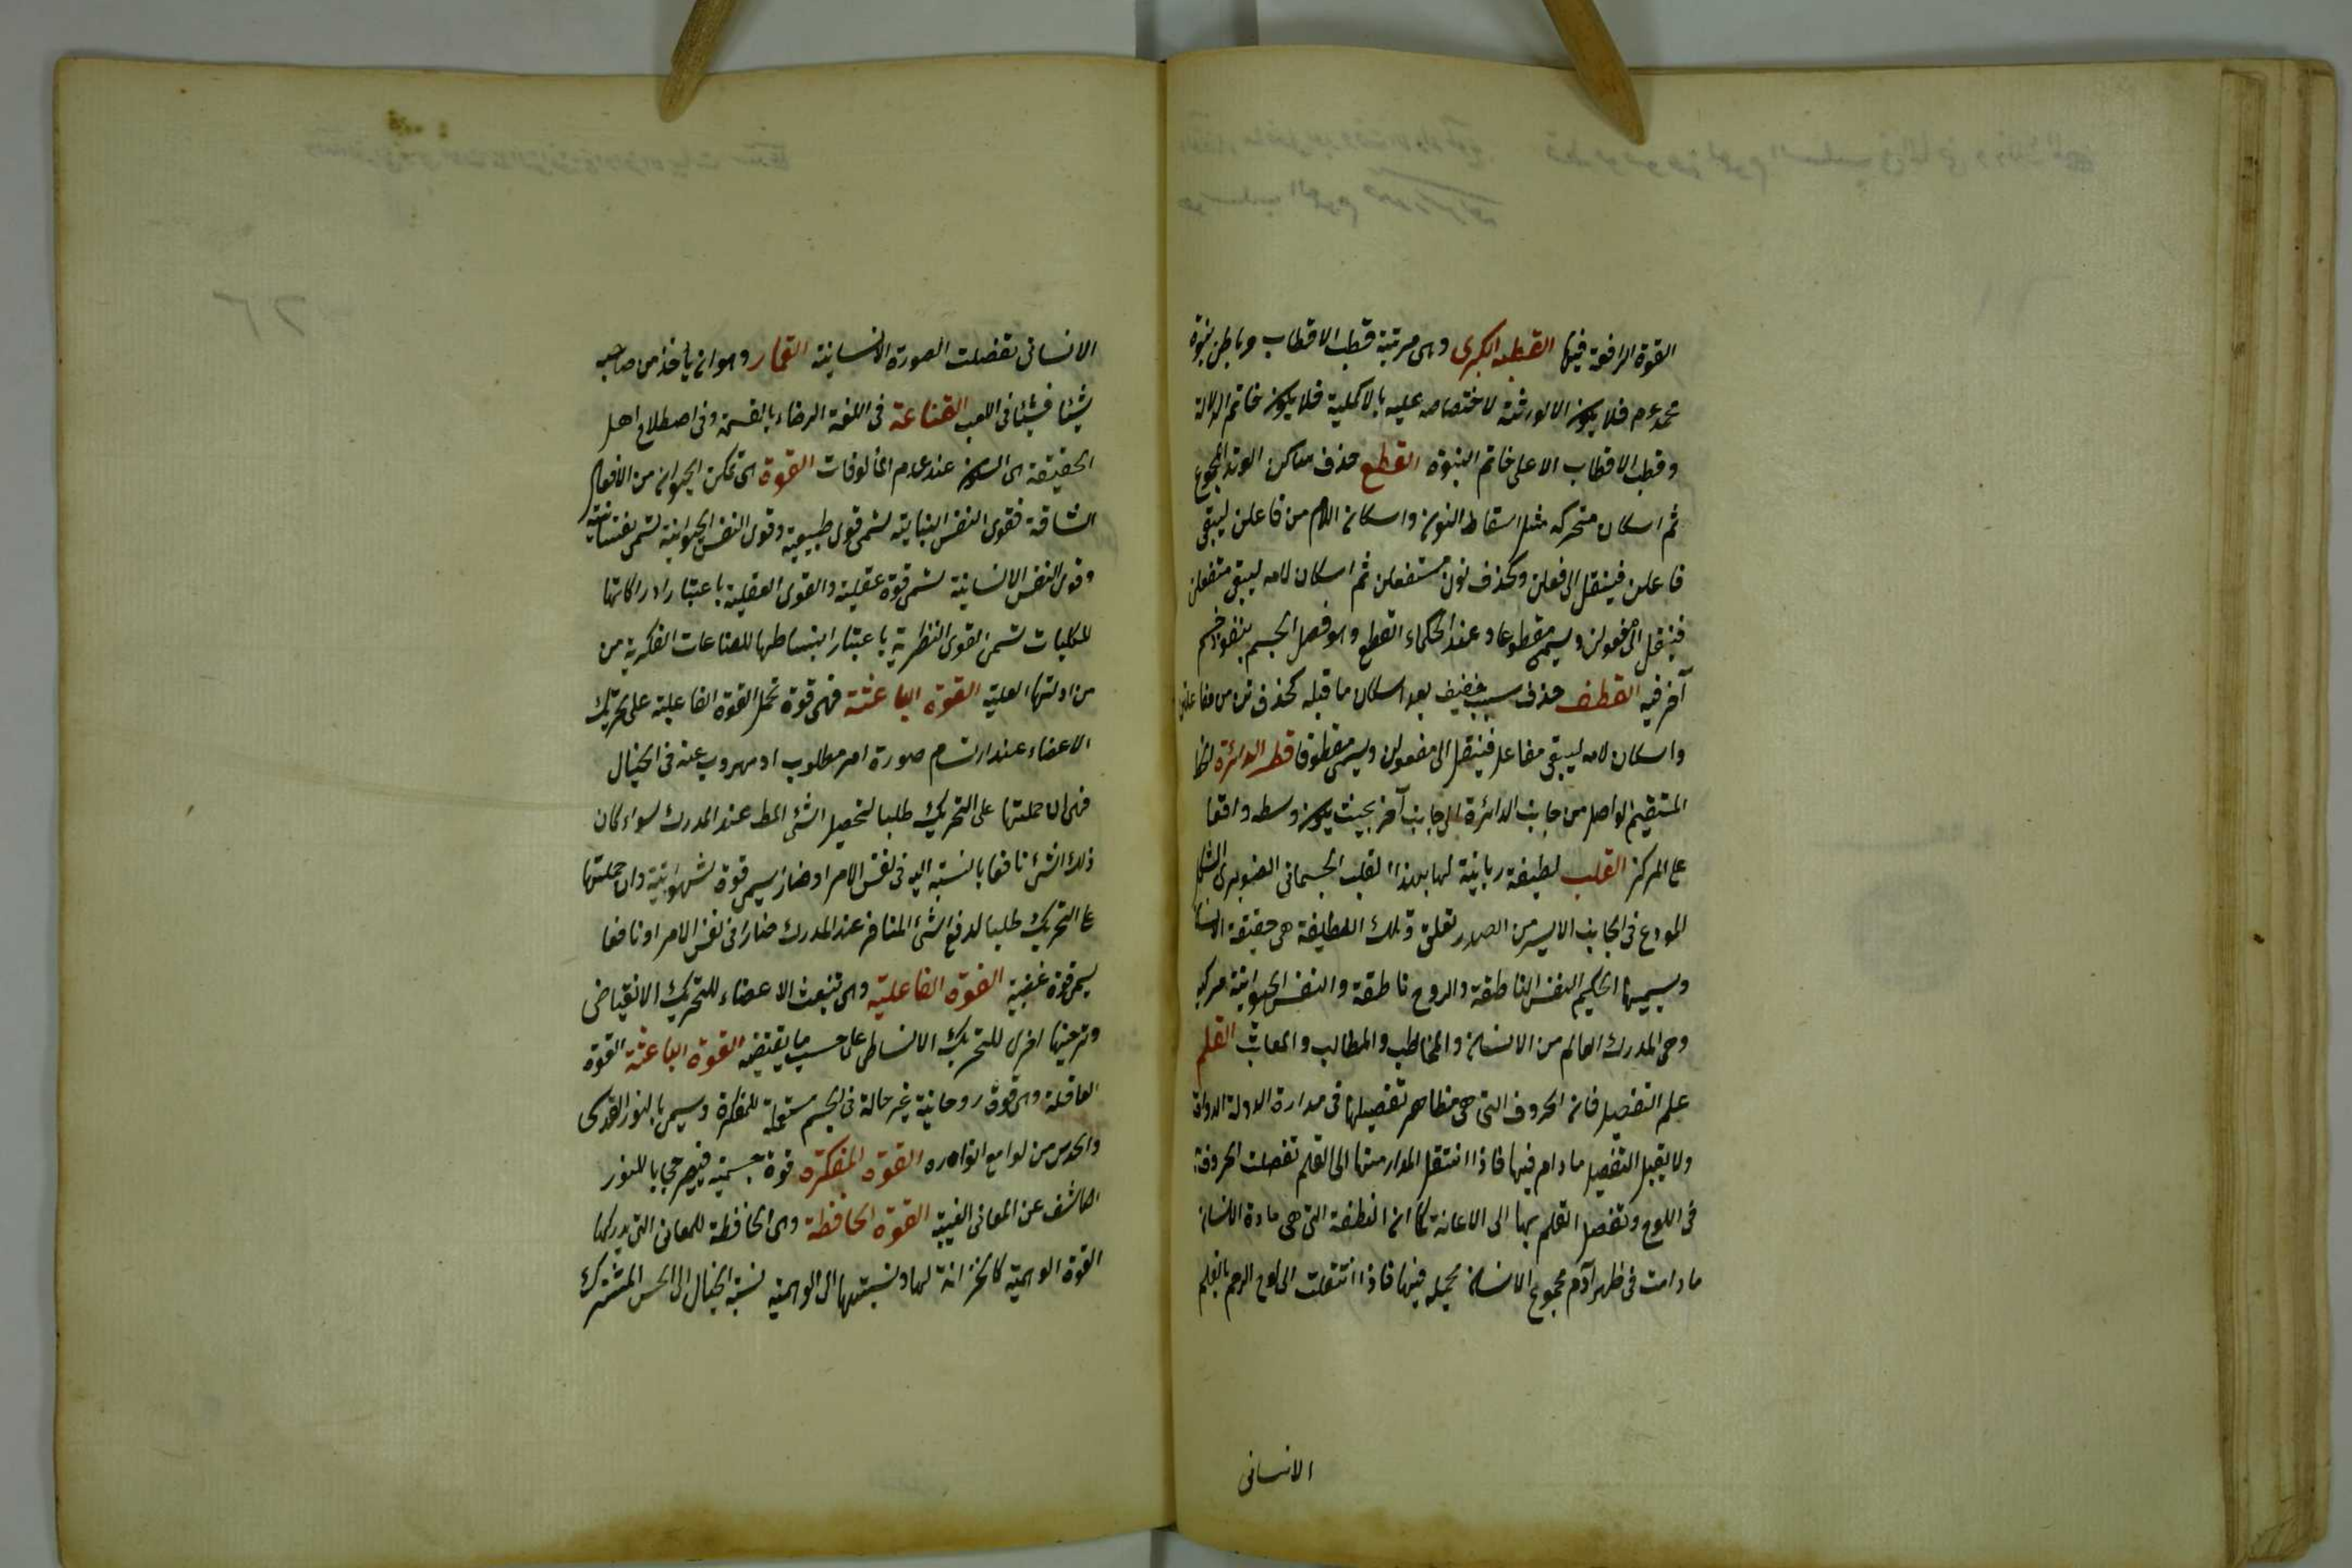 القوة الرافعة فيها القطبية الكبرى وهى مرتبة قطب الاقطاب وباطن نبوة
محمد عم فلا يكون الا لورثته لاختصاصه عليه بالاكملية فلا يكون خاتم الولاية
وقطب الاقطاب الا على خاتم النبوة القطع حذف ساكن الوتد المجموع
ثم اسكان متحركه مثل اسقاط النون واسكان اللام من فاعلن ليبقى
فاعلن فينقل الى فعلن وكحذف نون مستفعلن ثم اسكان لامه ليبقى مستفعل
فينقل الى مفعولن ويسمى مقطوعا وعند الحكماء القطع وهو فصل الجسم بنفوذ جسم
آخر فيه القطف حذف سبب خفيف بعد اسكان ما قبله كحذف تن من مفاعلتن
واسكان لامه ليبقى مفاعل فينقل الى فعولن ويسمى مقطوفا قطر الدائرة الخط
المستقيم الواصل من جانب الدائرة الى جانب آخر بحيث يكون وسطه واقعا
على المركز القلب لطيفة ربانية لها بهذا القلب الجسمانى الصنوبرى الشكل
المودع فى الجانب الايسر من الصدر تعلق وتلك اللطيفة هى حقيقة الانسان
ويسميها الحكيم النفس الناطقة والروح باطنه والنفس الحيوانية مركبه
وهى المدرك العالم من الانسان والمخاطب والمطالب والمعاتب القلم
علم التفصيل فان الحروف التى هى مظاهر تفصيلها فى مدارة الدولة الدواة
ولا يقبل التفصيل ما دام فيها فاذا انتقل المداد منها الى القلم تفصلت الحروف به
فى اللوح وتفصل القلم بها الى الاعانة كما ان النطفة التى هى مادة الانسان
ما دامت فى ظهر آدم مجموع الانسان مجمله فيها فاذا انتقلت الى لوح الرحم بالقلم
الانسانى
الانسانى تفصلت الصورة الانسانية القمار وهو ان يأخذ من صاحبه
شيئا فشيئا فى اللعب القناعة فى اللغة الرضاء بالقسمة وفى اصطلاح اهل
الحقيقة هى السكون عند عدم المألوفات القوة هى تمكن الحيوان من الافعال
الشاقة فقوى النفس النباتية تسمى قوى طبيعية وقوى النفس الحيوانية تسمى نفسانية
وقوى النفس الانسانية تسمى قوة عقلية والقوى العقلية باعتبار ادراكاتها
للكليات تسمى القوى النظرية باعتبار انبساطها للصناعات الفكرية من
من ادلتها العلية القوة الباعثة فهى قوة تحمل القوة الفاعلية على تحريك
الاعضاء عند ارتسام صورة امر مطلوب او مهروب عنه فى الخيال
فهى ان حملتها على التحريك طلبا لتحصيل الشئ المط عند المدرك سواء كان
ذلك الشئ نافعا بالنسبة اليه فى نفس الامر او ضارا يسمى قوة شهوانية وان حملتها
على التحريك طلبا لدفع الشئ المنافر عند المدرك ضارا فى نفس الامر او نافعا
يسمى قوة غضبية القوة الفاعلية وهى تنبعث الاعضاء للتحريك الانقباضى
وترخيها اخرى للتحريك الانبساطى على حسب ما يقتضيه القوة الباعثة القوة
العاقلة وهى قوة روحانية غير حالة فى الجسم مستعملة للمفكرة ويسمى بالنور القدسى
والحدس من لوامع انواره القوة المفكرة قوة جسمية فيصير حجابا للنور
الكاشف عن المعانى الغيبية القوة الحافظة وهى الحافظة للمعانى التى يدركها
القوة الوهمية كالخزانة لها ونسبتها الى الوهمية نسبة الخيال الى الحس المشترك